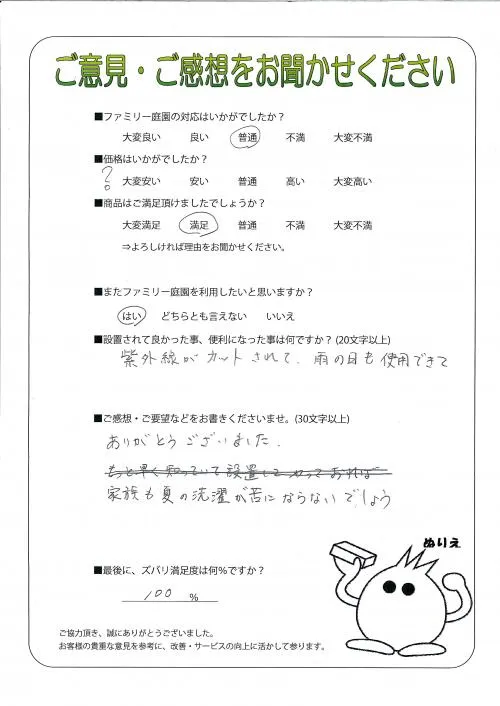 ご意見・ご感想をお聞かせください
■ファミリー庭園の対応はいかがでしたか？
大変良い 良い 普通 不満 大変不満
■価格はいかがでしたか？
? 大変安い 安い 普通 高い 大変高い
■商品はご満足頂けましたでしょうか？
大変満足 満足 普通 不満 大変不満
⇒よろしければ理由をお聞かせください。
■またファミリー庭園を利用したいと思いますか？
はい どちらとも言えない いいえ
■設置されて良かった事、便利になった事は何ですか？(20文字以上)
紫外線がカットされて、雨の日も使用できて
■ご感想・ご要望などをお書きくださいませ。(30文字以上)
ありがとうございました.
もっと早く知っていて設置して
家族も夏の洗濯が苦にならないでしょう
ぬりえ
■最後に、ズバリ満足度は何％ですか？
100 %
ご協力頂き、誠にありがとうございました。
お客様の貴重な意見を参考に、改善・サービスの向上に活かして参ります。